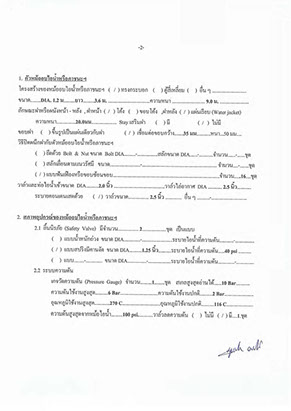 -2-
1. ตัวหม้ออบไอน้ำหรือภาชนะฯ
โครงสร้างของหม้ออบไอน้ำหรือภาชนะฯ ( / ) ทรงกระบอก ( ) ตู้สี่เหลี่ยม ( ) อื่น ๆ
ขนาด.......DIA. 1.2 ม........ยาว.......3.6 ม. ............ความหนา..............9.0 ม.
ลักษณะฝาหรือผนังหน้า - หลัง , ฝาหน้า ( / ) โค้ง ( ) ขอบโค้ง ,ฝาหลัง ( / ) แผ่นเรียบ (Water jacket)
ความหนา.........20.0มม.......... Stay เสริมฝา ( ) มี ( / ) ไม่มี
ขอบฝา ( ) ขึ้นรูปเป็นแผ่นเดียวกับฝา ( / ) เชื่อมต่อขอบกว้าง.......35 มม.......หนา...50 มม.
วิธีปิดผนึกฝากับตัวหม้ออบไอน้ำหรือภาชนะฯ
( ) ยึดด้วย Bolt & Nut ขนาด Bolt DIA..........-..........สลักขนาด DIA..........-..........จำนวน.......-.......ชุด
( ) สลักเลื่อนตามแนวรัศมี ขนาด..........-..........จำนวน.......-.......ชุด
( / ) แบบฟันเฟืองหรือขอบซ้อนขอบ..........จำนวน.......16...ชุด
วาล์วและท่อไอน้ำเข้าขนาด DIA..........2.0 นิ้ว ..........วาล์วไล่อากาศ DIA ..........2.5 นิ้ว..........
ระบายคอนเดนเสทด้วย ( / ) วาล์วขนาด..........2.5 นิ้ว .......... อื่น ๆ..........-..........
2. สภาพอุปกรณ์ของหม้ออบไอน้ำหรือภาชนะฯ
2.1 ลิ้นนิรภัย (Safety Valve) มีจำนวน..........2..........ชุด เป็นแบบ
( ) แบบน้ำหนักถ่วง ขนาด DIA..........-..........ระบายไอน้ำที่ความดัน..........-..........
( / ) แบบสปริงมีคานงัด ขนาด DIA..........1.25 นิ้ว..........ระบายไอน้ำที่ความดัน..........40 psi
( ) แบบ..........-..........ขนาด DIA..........-..........ระบายไอน้ำที่ความดัน..........-..........
2.2 ระบบความดัน
เกจวัดความดัน (Pressure Gauge) จำนวน.......1.......ชุด สเกลสูงสุดอ่านได้.......10 Bar
ความดันใช้งานสูงสุด..........6 Bar..........ความดันใช้งานปกติ..........2 Bar
อุณหภูมิใช้งานสูงสุด..........270 C..........อุณหภูมิใช้งานปกติ..........116 C
ความดันสูงสุดจากหม้อไอน้ำ..........100 psi.......วาล์วลดความดัน ( ) ไม่มี ( / ) มี....1.ชุด